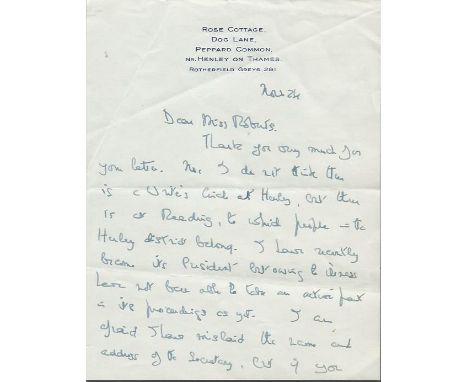 ROSE COTTAGE.
DOG LANE,
PEPPARD COMMON,
NR. HENLEY ON THAMES.
ROTHERFIELD GREYS 291
Nov. 24
Dear Miss Roberts.
Thank you very much for
your letter. No, I do not think there
is a Writers' Circle at Henley, but there
is at Reading, to which people in the
Henley district belong. I have recently
become its President but owing to illness
have not been able to take an active part
in its proceedings as yet. I am
afraid I have mislaid the name and
address of the Secretary, but if you